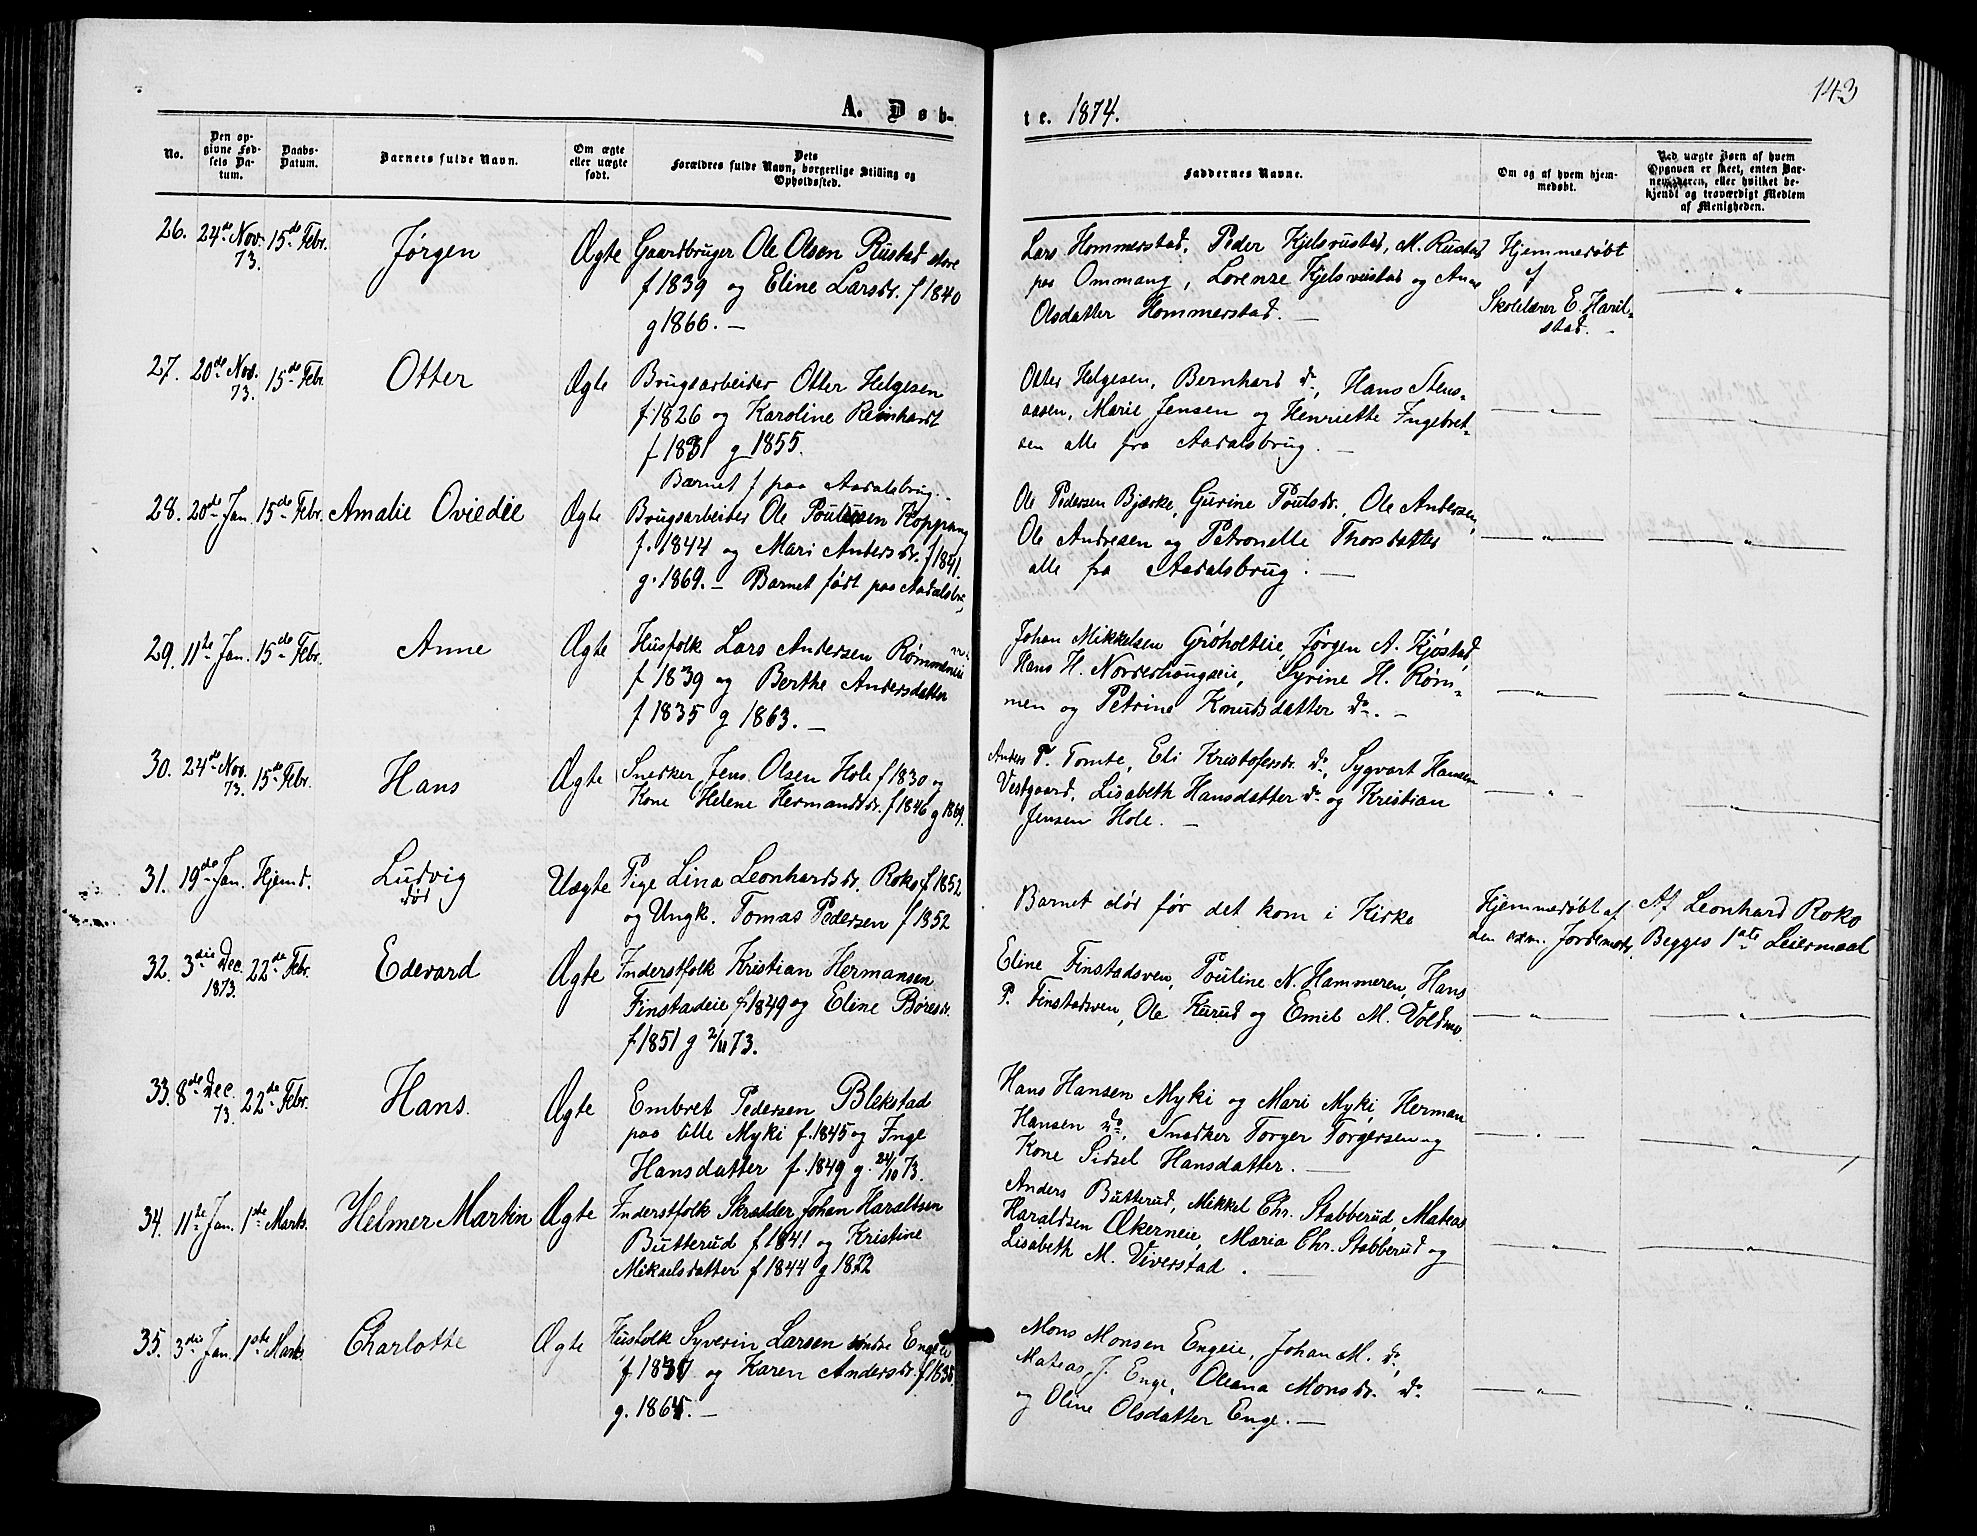 143
A. Døb-
te. 1874.
No.
Den op-
givne Fød-
sels Da-
tum.
Daabs-
Datum.
Barnets fulde Navn.
Om ægte
eller uægte
født.
Dets
Forældres fulde Navn, borgerlige Stilling og
Opholdssted.
Faddernes Navne.
Om og af hvem hjem-
medøbt.
Ved uægte Børn af hvem
Opgaven er skeet, enten Bar-
nemoderen, eller hvilket be-
kjendt og troværdigt Medlem
af Menigheden.
26. 24de Nov. 73. 15de Febr. Jørgen Ægte
Gaardbruger Ole Olsen Rustad store
f 1839 og Eline Larsdr. f 1840
g 1866. —
Lars Hommerstad, Peder Kjelsrustad, M. Rustad
paa Ommang, Lorense Kjelsrustad og Anne
Olsdatter Hommerstad. —
Hjemmedøbt
af
Skolelærer E. Haril-
stad. —
— " —
27. 20de Nov. 73. 15de Febr. Otter Ægte
Brugsarbeider Otter Helgesen
f. 1826 og Karoline Reinhardt
f 1831 g 1855.
Barnet f paa Aadalsbrug. -
Otter Helgesen, Bernhard do, Hans Stens-
aasen, Marie Jensen og Henriette Ingebret-
sen alle fra Aadalsbrug. —
— " —
— " —
28. 20de Jan. 15de Febr. Amalie Oviedie Ægte
Brugsarbeider Ole Poulsen Koppang
f. 1844 og Mari Andersdr. f 1841.
g. 1869. — Barnet født paa Aadalsbr.
Ole Pedersen Bjærke, Gurine Poulsdr., Ole Andersen,
Ole Andresen og Petronelle Thorsdatter
alle fra Aadalsbrug. —
— " —
— " —
29. 11te Jan. 15de Febr. Anne Ægte
Husfolk Lars Andersen Rømmeneie
f 1839 og Berthe Andersdatter
f 1835 g 1863. —
Johan Mikkelsen Grøholteie, Jørgen A. Kjøstad,
Hans H. Norderhougseie, Syrine H. Røm-
men og Petrine Knudsdatter do. —
— " —
— " —
30. 24de Nov. 73. 15de Febr. Hans Ægte
Snedker Jens Olsen Hole f 1830 og
Kone Helene Hermandsdr. f 1846 g 1869.
Anders P. Tomte, Eli Kristofersdr. do, Sygvart Hansen
Vestgaard, Lisabeth Hansdatter do og Kristian
Jensen Hole. —
— " —
— " —
31. 19de Jan. Hjemd. Ludvig Uægte
død
Pige Lina Leonhardsdr. Roko f 1852
og Ungk. Tomas Pedersen f 1852
Barnet død før det kom i Kirke
Hjemmedøbt af
den exm. Jordemoder
Af Leonhard Roko
Begges 1ste Leiermaal
32. 3die Dec. 1873. 22de Febr. Edevard Ægte
Inderstfolk Kristian Hermansen
Finstadeie f 1849 og Eline Børesdr.
f 1851 g 2/11 73.
Eline Finstadsven, Pouline N. Hammeren, Hans
P. Finstadsven, Ole Kurud og Emil M. Voldmo
— " —
— " —
33. 8de Dec. 73. 22de Febr. Hans. Ægte
Embret Pedersen Blekstad
paa lille Myki f. 1845 og Inge
Hansdatter f. 1849 g. 24/10 73.
Hans Hansen Myki og Mari Myki, Herman
Hansen do, Snedker Torger Torgersen og
Kone Sidsel Hansdatter. —
— " —
— " —
34. 11te Jan. 1ste Marts. Helmer Martin Ægte
Inderstfolk Skrædder Johan Haraldsen
Butterud f 1841 og Kristine
Mikaelsdatter f 1844 g 1872
Anders Butterud, Mikkel Chr. Stabberud, Mateas
Haraldsen Ækerneie, Maria Chr. Stabberud og
Lisabeth M. Viverstad. —
— " —
— " —
35. 3die Jan. 1ste Marts. Charlotte Ægte
Husfolk Syverin Larsen søndre Engeie
f 1837 og Karen Andersdr. f 1835.
g. 1865. —
Mons Monsen Engeie, Johan M. do,
Mateas J. Enge, Oleana Monsdr. do
og Oline Olsdatter Enge. —
— " —
— " —